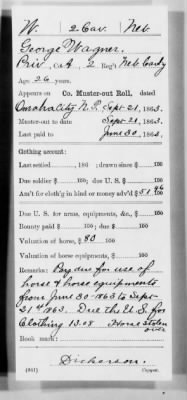 W. 2 Cav. Neb.
George Wagner.
Priv., Co. A, 2 Reg't Neb. Cavly
Age 26 years.
Appears on Co. Muster-out Roll, dated
Omaha City, N.T., Sept 21, 1863.
Muster-out to date Sept 21, 1863.
Last paid to June 30, 1863.
Clothing account:
Last settled , 186 ; drawn since $ 100
Due soldier $ 100; due U. S. $ 100
Am't for cloth'g in kind or money adv'd $ 51 96/100
Due U. S. for arms, equipments, &c., $ 100
Bounty paid $ 100; due $ 100
Valuation of horse, $ 80 100
Valuation of horse equipments, $ 100
Remarks: Pay due for use of
horse & horse equipments
from June 30-1863 to Sept
21st 1863. Due the U.S. for
Clothing 13.08 Horse stolen
Book mark:
Dickerson.
(861) Copyist.